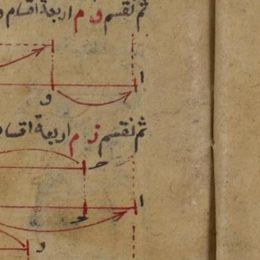 ثم نقسم و م اربعة اقسام و
ا
و
ثم نقسم ز م اربعة اقسا
ح
ا
ح
و